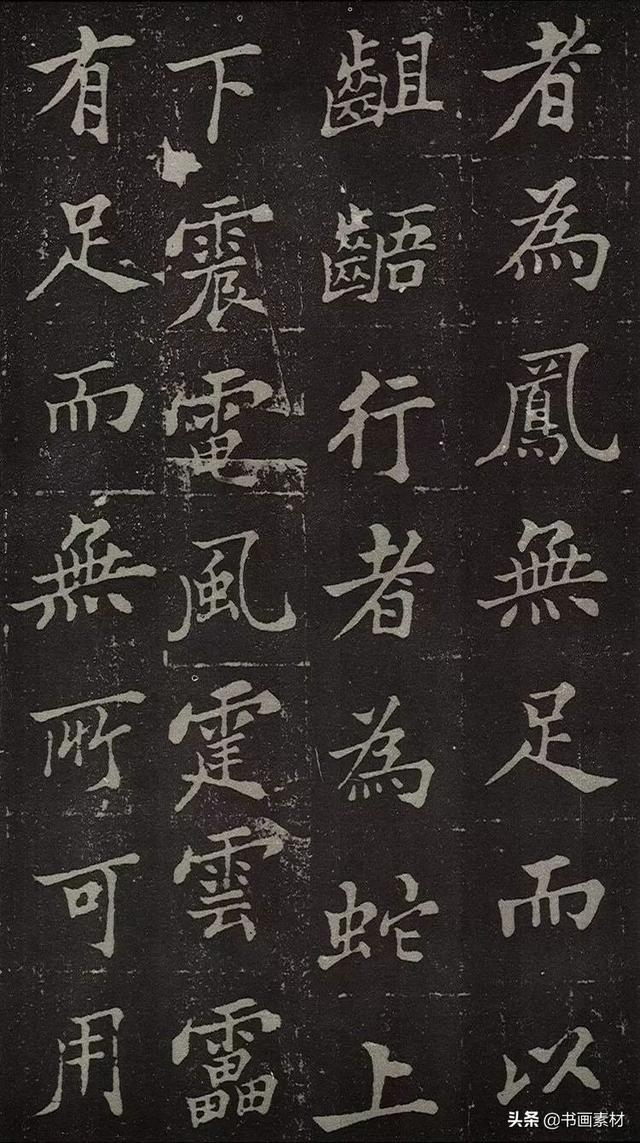 者為鳳無足而以
齟齬行者為蛇上
下震電風霆雲靁
有足而無所可用
头条@书画素材